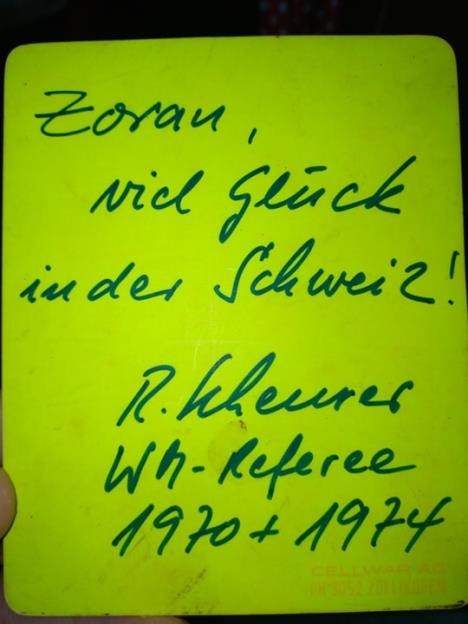 Zoran,
viel Glück
in der Schweiz!
R. Scheurer
WM-Referee
1970 + 1974
CELLWAR AG
CH 3052 ZOLLIKOFEN